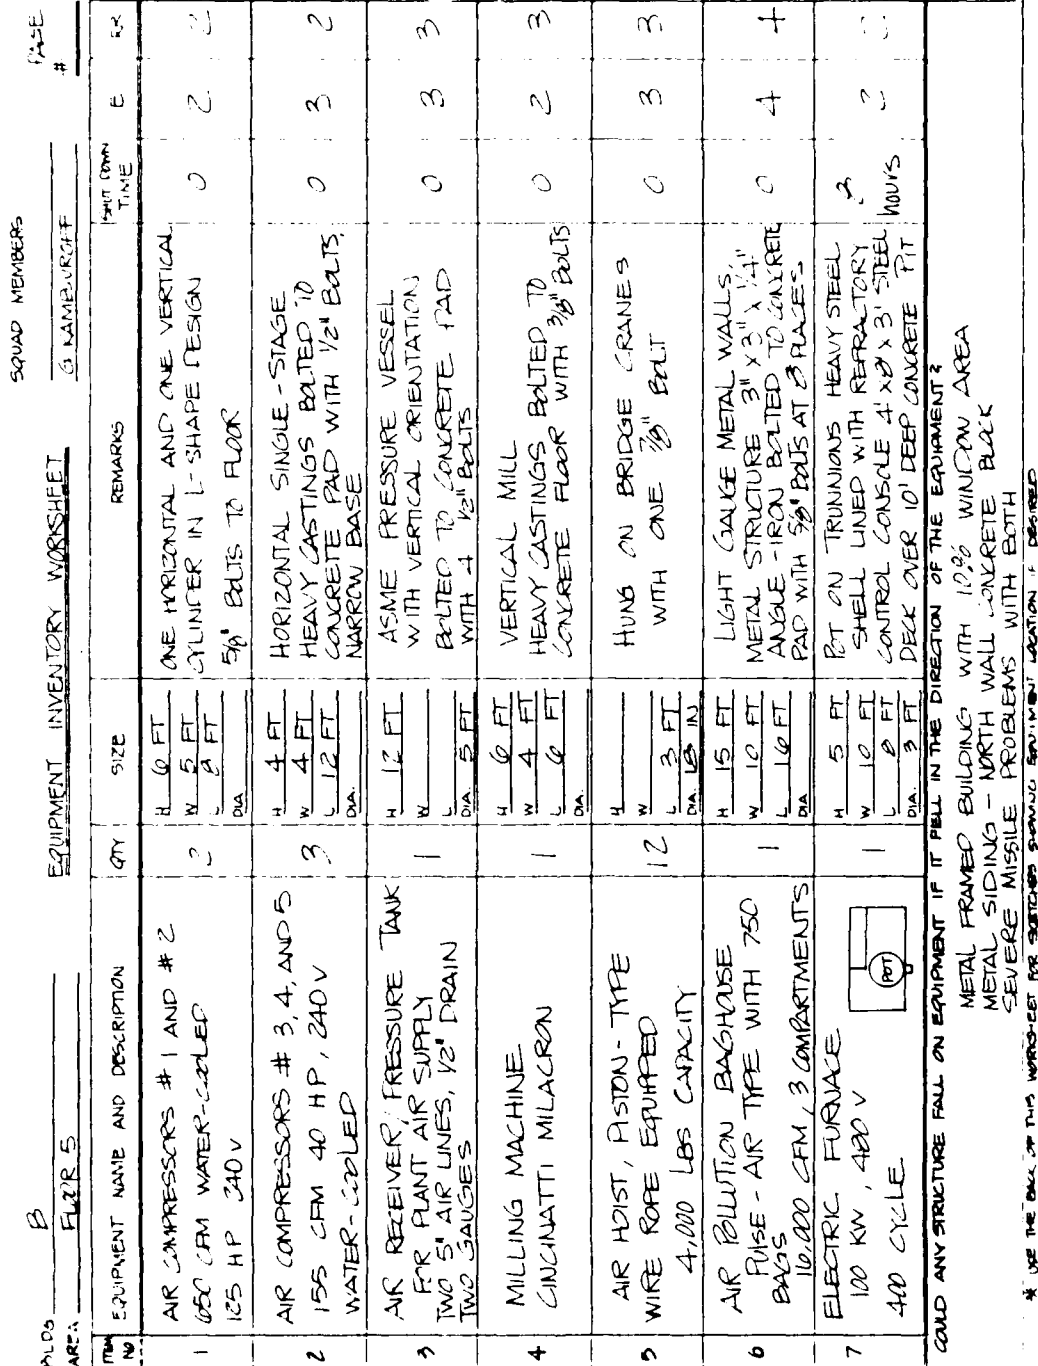 BLDG B
AREA FLOOR 5
EQUIPMENT INVENTORY WORKSHEET
SQUAD MEMBERS
G
PAGE #
ITEM NO EQUIPMENT NAME AND DESCRIPTION QTY SIZE REMARKS SHUT DOWN TIME E RR
1 AIR COMPRESSORS # 1 AND # 2
650 CFM WATER-COOLED
125 HP 240 V
2
H 6 FT
W 5 FT
L 8 FT
DIA.
ONE HORIZONTAL AND ONE VERTICAL
CYLINDER IN L-SHAPE DESIGN
5/8" BOLTS TO FLOOR
0 2 2
2 AIR COMPRESSORS # 3, 4, AND 5
155 CFM 40 HP, 240 V
WATER-COOLED
3
H 4 FT
W 4 FT
L 12 FT
DIA.
HORIZONTAL SINGLE-STAGE
HEAVY CASTINGS BOLTED TO
CONCRETE PAD WITH 1/2" BOLTS,
NARROW BASE
0 3 2
3 AIR RECEIVER, PRESSURE TANK
FOR PLANT AIR SUPPLY
TWO 5" AIR LINES, 1/2" DRAIN
TWO GAUGES
1
H 12 FT
W
L
DIA. 5 FT
ASME PRESSURE VESSEL
WITH VERTICAL ORIENTATION
BOLTED TO CONCRETE PAD
WITH 4 1/2" BOLTS
0 3 3
4 MILLING MACHINE
CINCINATTI MILACRON
1
H 6 FT
W 4 FT
L 6 FT
DIA.
VERTICAL MILL
HEAVY CASTINGS BOLTED TO
CONCRETE FLOOR WITH 3/8" BOLTS
0 2 3
5 AIR HOIST, PISTON-TYPE
WIRE ROPE EQUIPPED
4,000 LBS CAPACITY
12
H
W
L 3 FT
DIA. 18 IN
HUNG ON BRIDGE CRANES
WITH ONE 7/8" BOLT
0 3 3
6 AIR POLLUTION BAGHOUSE
PULSE-AIR TYPE WITH 750
BAGS
16,000 CFM, 3 COMPARTMENTS
1
H 15 FT
W 10 FT
L 16 FT
DIA.
LIGHT GAUGE METAL WALLS,
METAL STRUCTURE 3" X 3" X 1/4"
ANGLE-IRON BOLTED TO CONCRETE
PAD WITH 5/8" BOLTS AT 8 PLACES
0 4 4
7 ELECTRIC FURNACE
100 KW, 480 V
400 CYCLE
POT
1
H 5 FT
W 10 FT
L 8 FT
DIA. 3 FT
POT ON TRUNNIONS HEAVY STEEL
SHELL LINED WITH REFRACTORY
CONTROL CONSOLE 4' X 8' X 3' STEEL
DECK OVER 10' DEEP CONCRETE PIT
3 hours
COULD ANY STRUCTURE FALL ON EQUIPMENT IF IT FELL IN THE DIRECTION OF THE EQUIPMENT?
METAL FRAMED BUILDING WITH 10% WINDOW AREA
METAL SIDING - NORTH WALL CONCRETE BLOCK
SEVERE MISSILE PROBLEMS WITH BOTH
* USE THE BACK OF THIS WORKSHEET FOR SKETCHES SHOWING EQUIPMENT LOCATION IF DESIRED